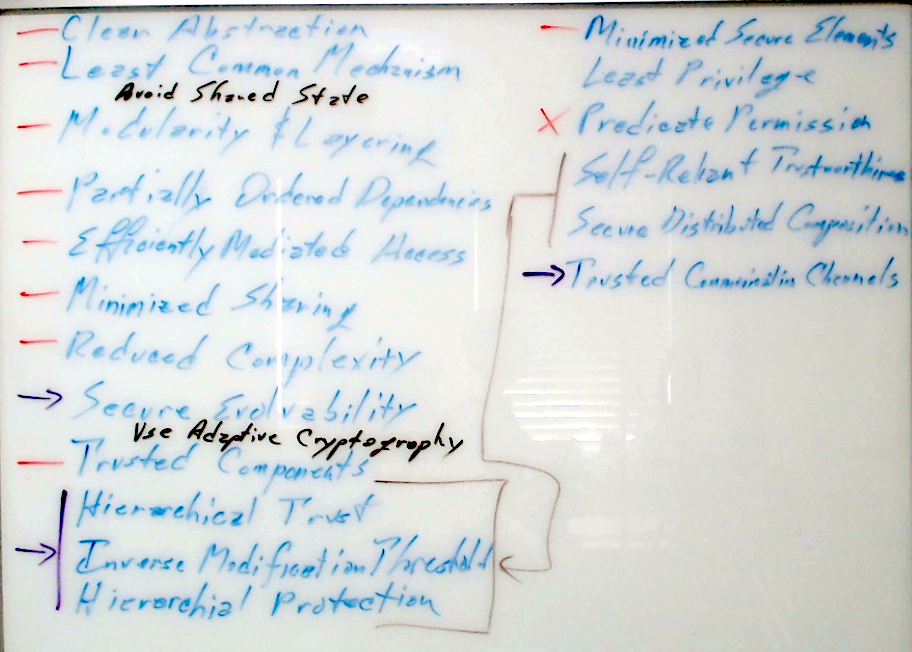 Clean Abstraction
Least Common Mechanism
Avoid Shared State
Modularity & Layering
Partially Ordered Dependencies
Efficiently Mediated Access
Minimized Sharing
Reduced Complexity
Secure Evolvability
Use Adaptive Cryptography
Trusted Components
Hierarchical Trust
Inverse Modification Threshold
Hierarchial Protection
Minimized Secure Elements
Least Privilege
Predicate Permission
Self-Reliant Trustworthiness
Secure Distributed Composition
Trusted Communication Channels